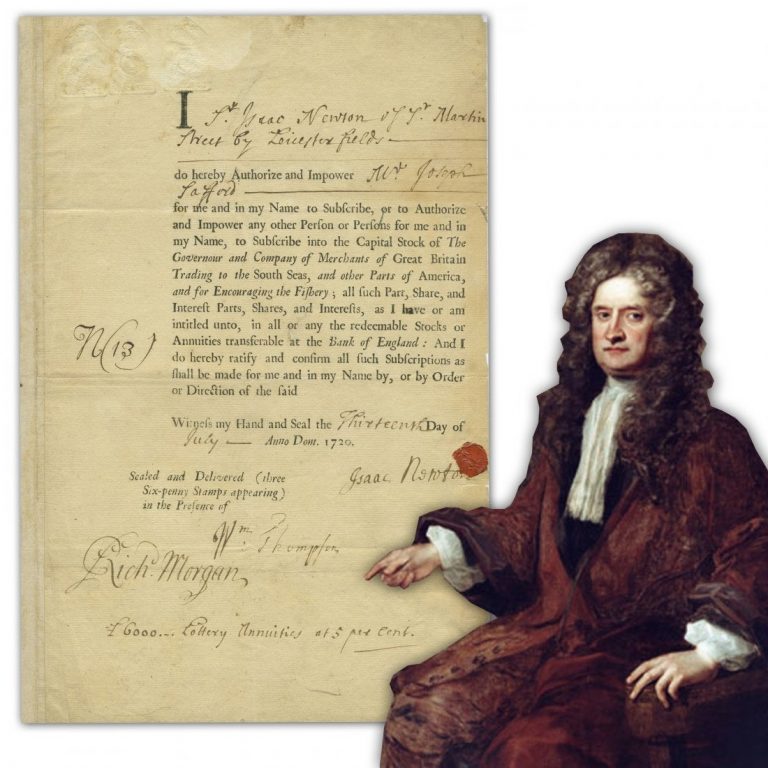 I Sr. Isaac Newton of St. Martin
Street by Leicester fields
do hereby Authorize and Impower Mr. Joseph
Safford
for me and in my Name to Subſcribe, or to Authorize
and Impower any other Perſon or Perſons for me and in
my Name, to Subſcribe into the Capital Stock of The
Governour and Company of Merchants of Great Britain
Trading to the South Seas, and other Parts of America,
and for Encouraging the Fiſhery; all ſuch Part, Share, and
Intereſt Parts, Shares, and Intereſts, as I have or am
intitled unto, in all or any the redeemable Stocks or
Annuities tranſferable at the Bank of England: And I
do hereby ratify and confirm all ſuch Subſcriptions as
ſhall be made for me and in my Name by, or by Order
or Direction of the ſaid
N(13)
Witneſs my Hand and Seal the Thirteenth Day of
July Anno Dom. 1720.
Sealed and Delivered (three
Six-penny Stamps appearing)
in the Preſence of
Isaac Newton
Wm. Thompson
Richd. Morgan
£6000... Lottery Annuities at 5 per Cent.